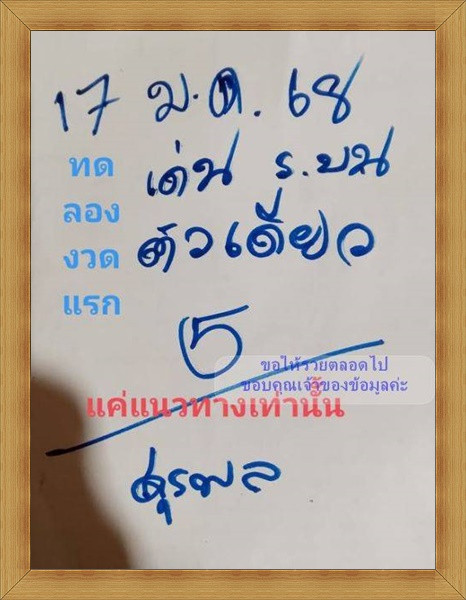 17 ม.ค. 68
ทด
ลอง
งวด
แรก
เด่น ร.บน
ตัวเดียว
5
ขอให้รวยตลอดไป
ขอบคุณเจ้าของข้อมูลค่ะ
แค่แนวทางเท่านั้น
สุรพล